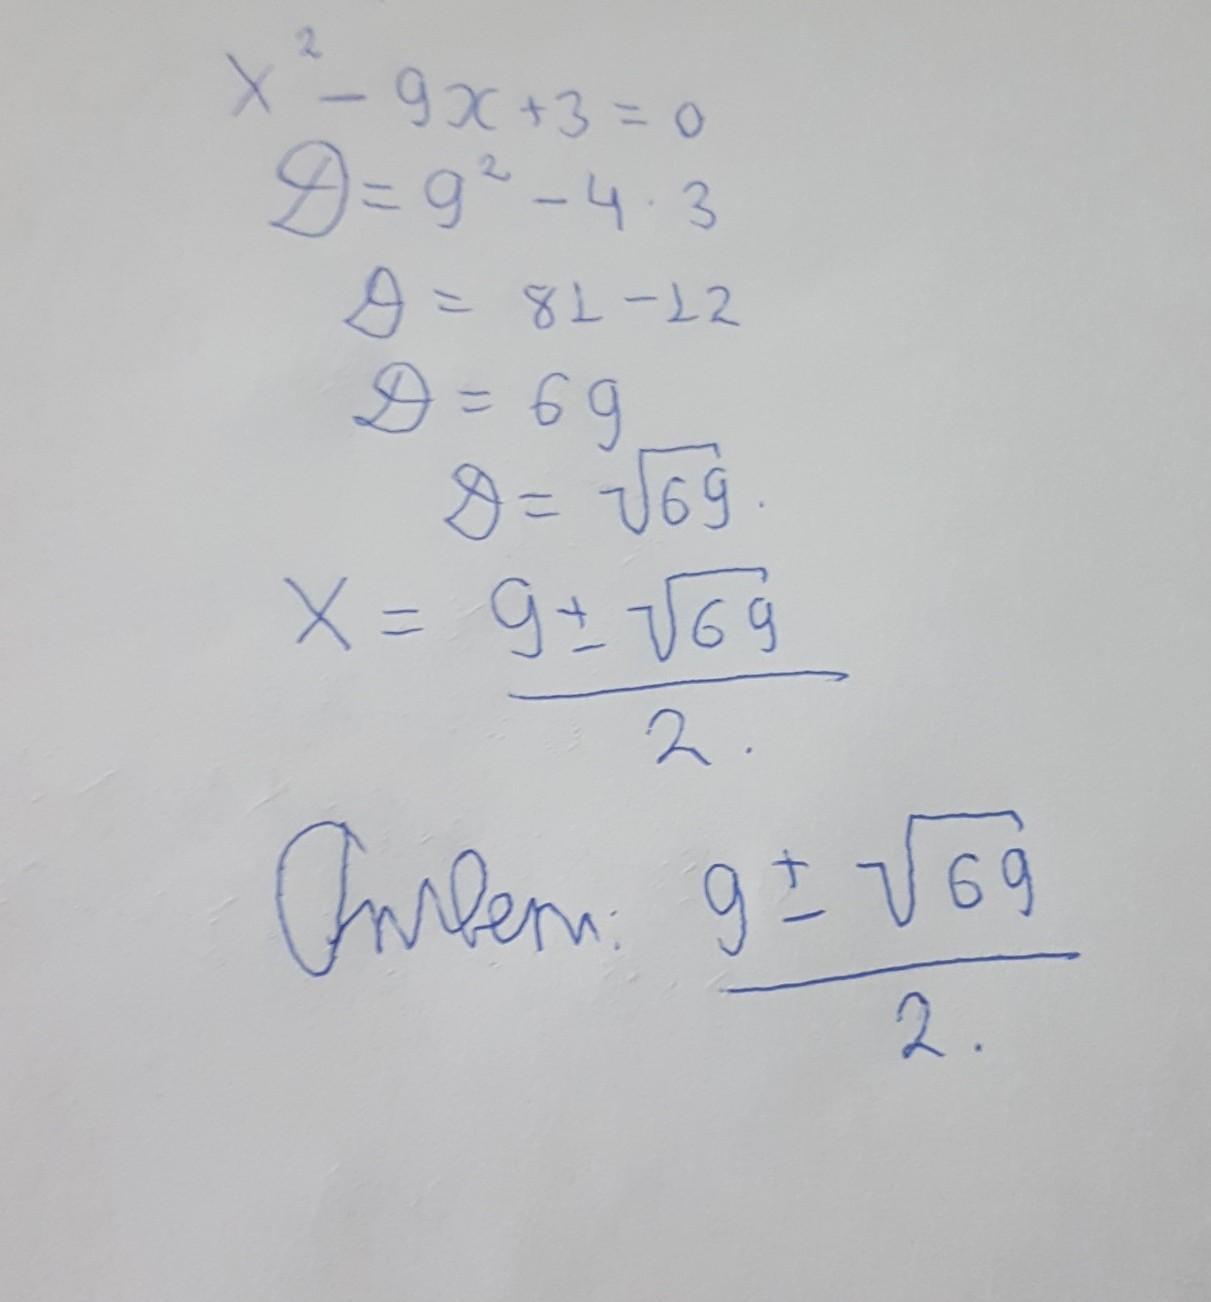 x² - 9x + 3 = 0
D = 9² - 4 · 3
D = 81 - 12
D = 69
D = √69.
x = (9 ± √69) / 2.
Ответ: (9 ± √69) / 2.